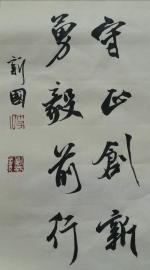 守正創新
勇毅前行
新國